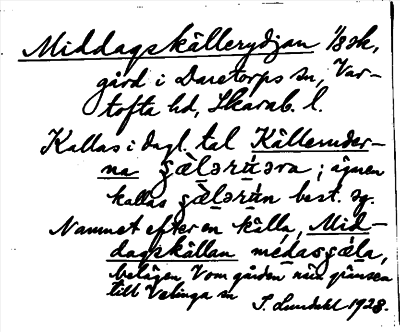 Middagskällerydjan 1/8 mtl,
gård i Daretorps sn, Var-
tofta hd, Skarab. l.
Kallas i dagl. tal Källeruder-
na ; ägnen
kallas best. sg.
Namnet efter en källa, Mid-
dagskällan
belägen V om gården nära gränsen
till Velinga sn S. Lundahl 1928.